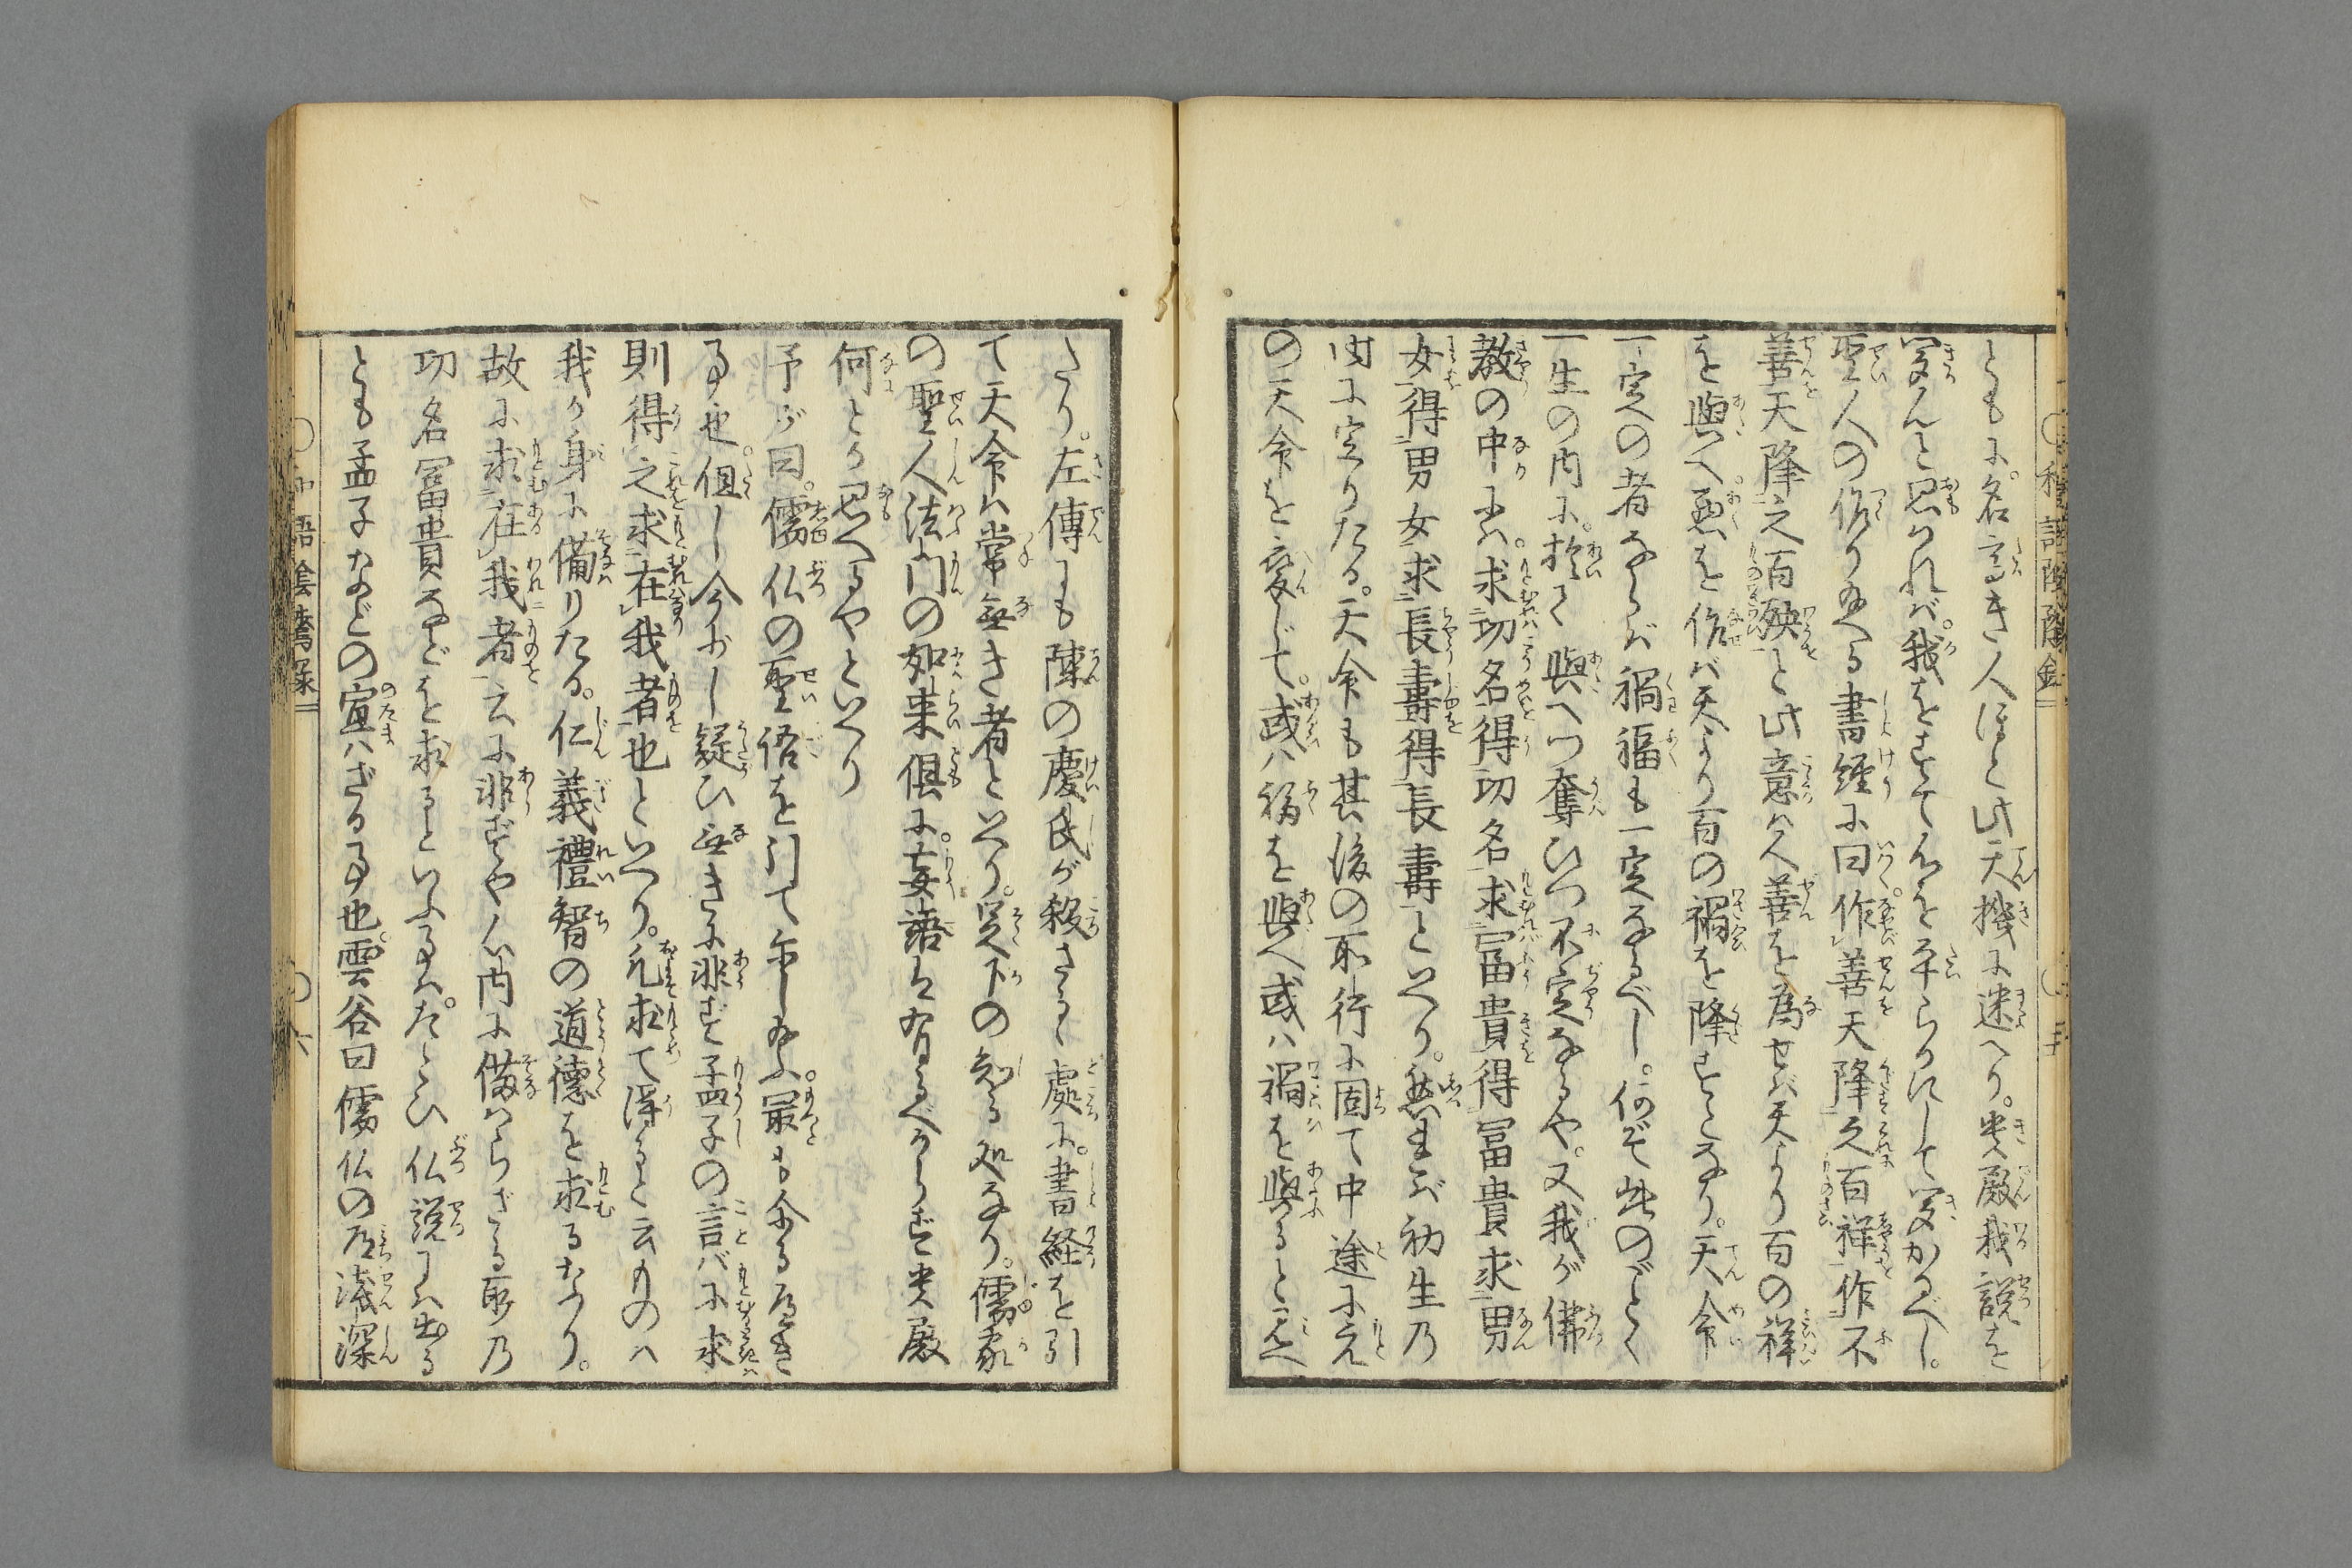 ともに。名高き人ほど此天機に迷へり。貴殿我説を
聞んと思われバ。我をすて心を平らかにして聞かるべし。
聖人の作り給へる書経に曰。作善天降之百祥作不
善天降之百殃と此意ハ人善を為せバ天より百の祥
を與へ。悪を作バ天より百の禍を降すとなり。天命
一定の者ならバ禍福も一定なるべし。何ぞ此のごとく
一生の内に。於て與へつ奪ひつ不定なるや。又我が佛
教の中にハ。求功名得功名求冨貴得冨貴求男
女得男女求長壽得長壽といへり。然れバ初生乃
時に定りたる。天命も其後の所行に固て中途にて
の天命を変じて。或ハ福を與へ或ハ禍を與ると見へ
たり。左傳にも陳の慶氏が殺さるゝ處に。書経を引
て天命ハ常無き者といへり。天下の知る処なり。儒家
の聖人法門の如来倶に。妄語ハ有るべからず貴殿
何とか思へるやといへり
予が曰。儒仏の聖語を引て示し給ふ。最も余る尽き
事也。但し今少し疑ひ無きに非ず孟子の言バに求
則得之求在我者也といへり。凡求て得ると云ものハ
我か身に備りたる。仁義禮智の道徳を求るなり。
故に求在我者云に非ずや心内に備はらざる所乃
功名冨貴などを求るといふ事ハ。たとひ仏説にハ出る
とも孟子などの宣ハざる事也。雲谷曰儒仏の道浅深